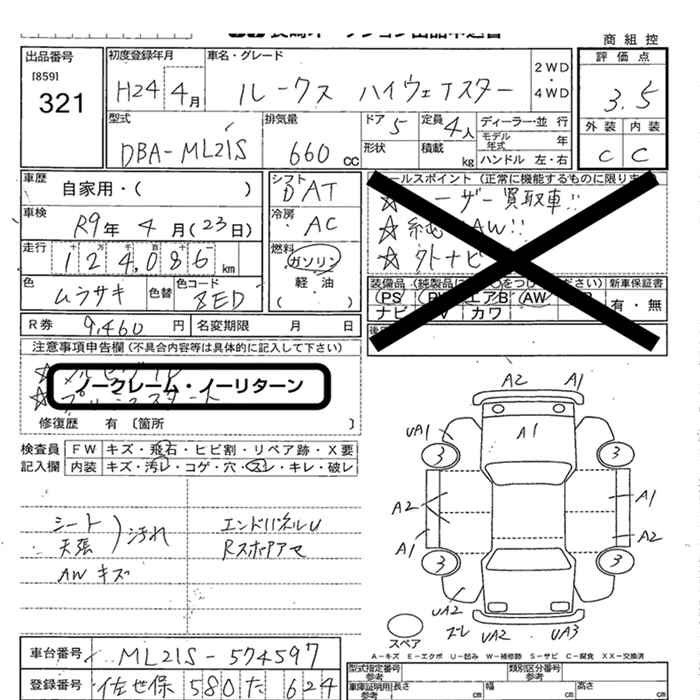 商 組 控
出品番号
[859]
321
初度登録年月
H24年 4月
車名・グレード
ルークス ハイウェイスター
2WD
・
4WD
評 価 点
3.5
外 装 内 装
C C
型式
DBA-ML21S
排気量
660 cc
ドア 5
定員 4人
形状
積載 kg
ディーラー・並 行
モデル年式 年
ハンドル 左・右
車歴
自家用・( )
車検
R9年 4月(23日)
走行
十 万 千 百 十 一
124,086 km
色
ムラサキ
色替
色コード
シフト
DAT
冷房
AC
燃料
ガソリン
軽・油
( )
セールスポイント (正常に機能するものに限ります
☆ ーザー買取車!!
☆ 純 AW!!
☆ 外ナビ
PS エアB AW
ナビ カワ
新車保証書
有・無
R券 9,460 円
名変期限 月 日
注意事項申告欄 (不具合内容等は具体的に記入して下さい)
ノークレーム・ノーリターン
修復歴 有〔箇所 〕
検査員
記入欄
FW キズ・飛石・ヒビ割・リペア跡・X要
内装 キズ・汚レ・コゲ・穴・スレ・キレ・破レ
シート
天張
)汚れ
AW キズ
エンドパネルU
A2 A1
A1
UA1
3 3
A2 A1
A1 A2
3 3
UA2
ズレ UA2 UA3
スペア
A−キズ E−エクボ U−凹み W−補修跡 S−サビ C−腐食 XX−交換済
車台番号 ML21S-574597
登録番号 佐世保 580 た 624
型式指定番号
参考
類別区分番号
参考
車庫証明用
参考
長さ cm
幅 cm
高さ cm